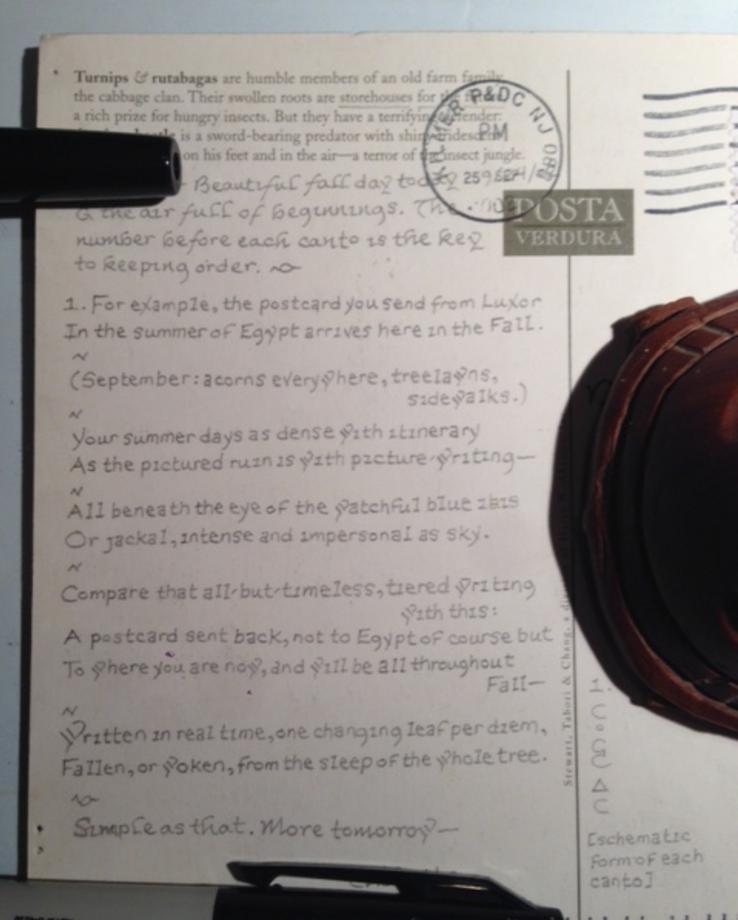 Turnips & rutabagas are humble members of an old farm family,
the cabbage clan. Their swollen roots are storehouses for
a rich prize for hungry insects. But they have a terrifying defender:
is a sword-bearing predator with shiny iridescent
on his feet and in the air—a terror of the insect jungle.
P&DC NJ 080
PM
25 SEP
POSTA
VERDURA
Beautiful fall day today
& the air full of beginnings. The
number before each canto is the key
to keeping order.
1. For example, the postcard you send from Luxor
In the summer of Egypt arrives here in the Fall.
(September: acorns everywhere, treelawns,
sidewalks.)
Your summer days as dense with itinerary
As the pictured ruin is with picture-writing—
All beneath the eye of the watchful blue ibis
Or jackal, intense and impersonal as sky.
Compare that all-but-timeless, tiered writing
with this:
A postcard sent back, not to Egypt of course but
To where you are now, and will be all throughout
Fall—
Written in real time, one changing leaf per diem,
Fallen, or woken, from the sleep of the whole tree.
Simple as that. More tomorrow—
Stewart, Tabori & Chang, a
1.
[schematic
form of each
canto]